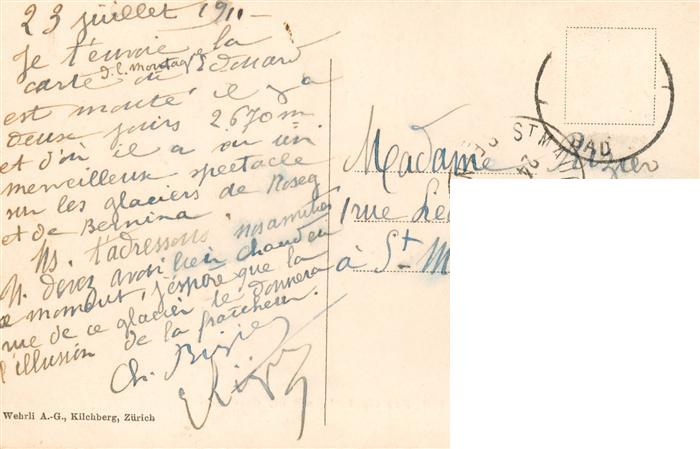 23 juillet 1911
Je t'envoie la
carte d.l. montag. où Edouard
est monté il y a
deux jours 2670m
et d'où il a vu un
merveilleux spectacle
sur les glaciers de Roseg
et de Bernina.
Ns. t'adressons nos amitiés
V. devez avoir bien chaud en
ce moment, j'espère que la
vue de ce glacier te donnera
l'illusion de la fraîcheur.
Ch.
Wehrli A.-G., Kilchberg, Zürich
ST. M BAD
24
Madame
1 rue
à St-M